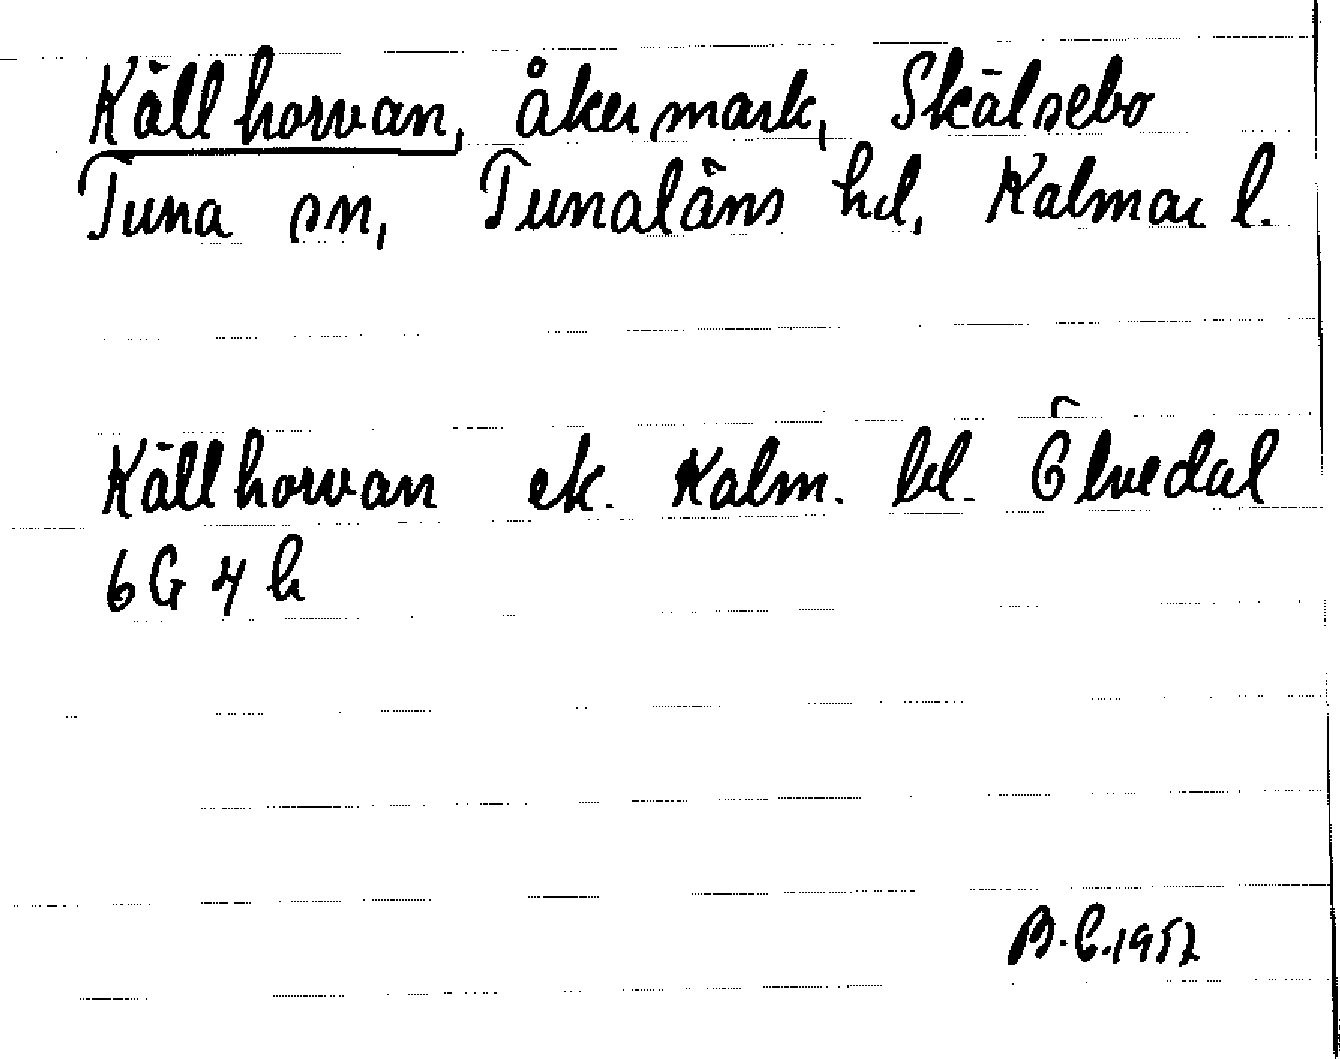 Källhorvan, åkermark, Skälsebo
Tuna sn, Tunaläns hd, Kalmar l.
Källhorvan ek. Kalm. bl. Ölvedal
6G 4 h
B.E.1952